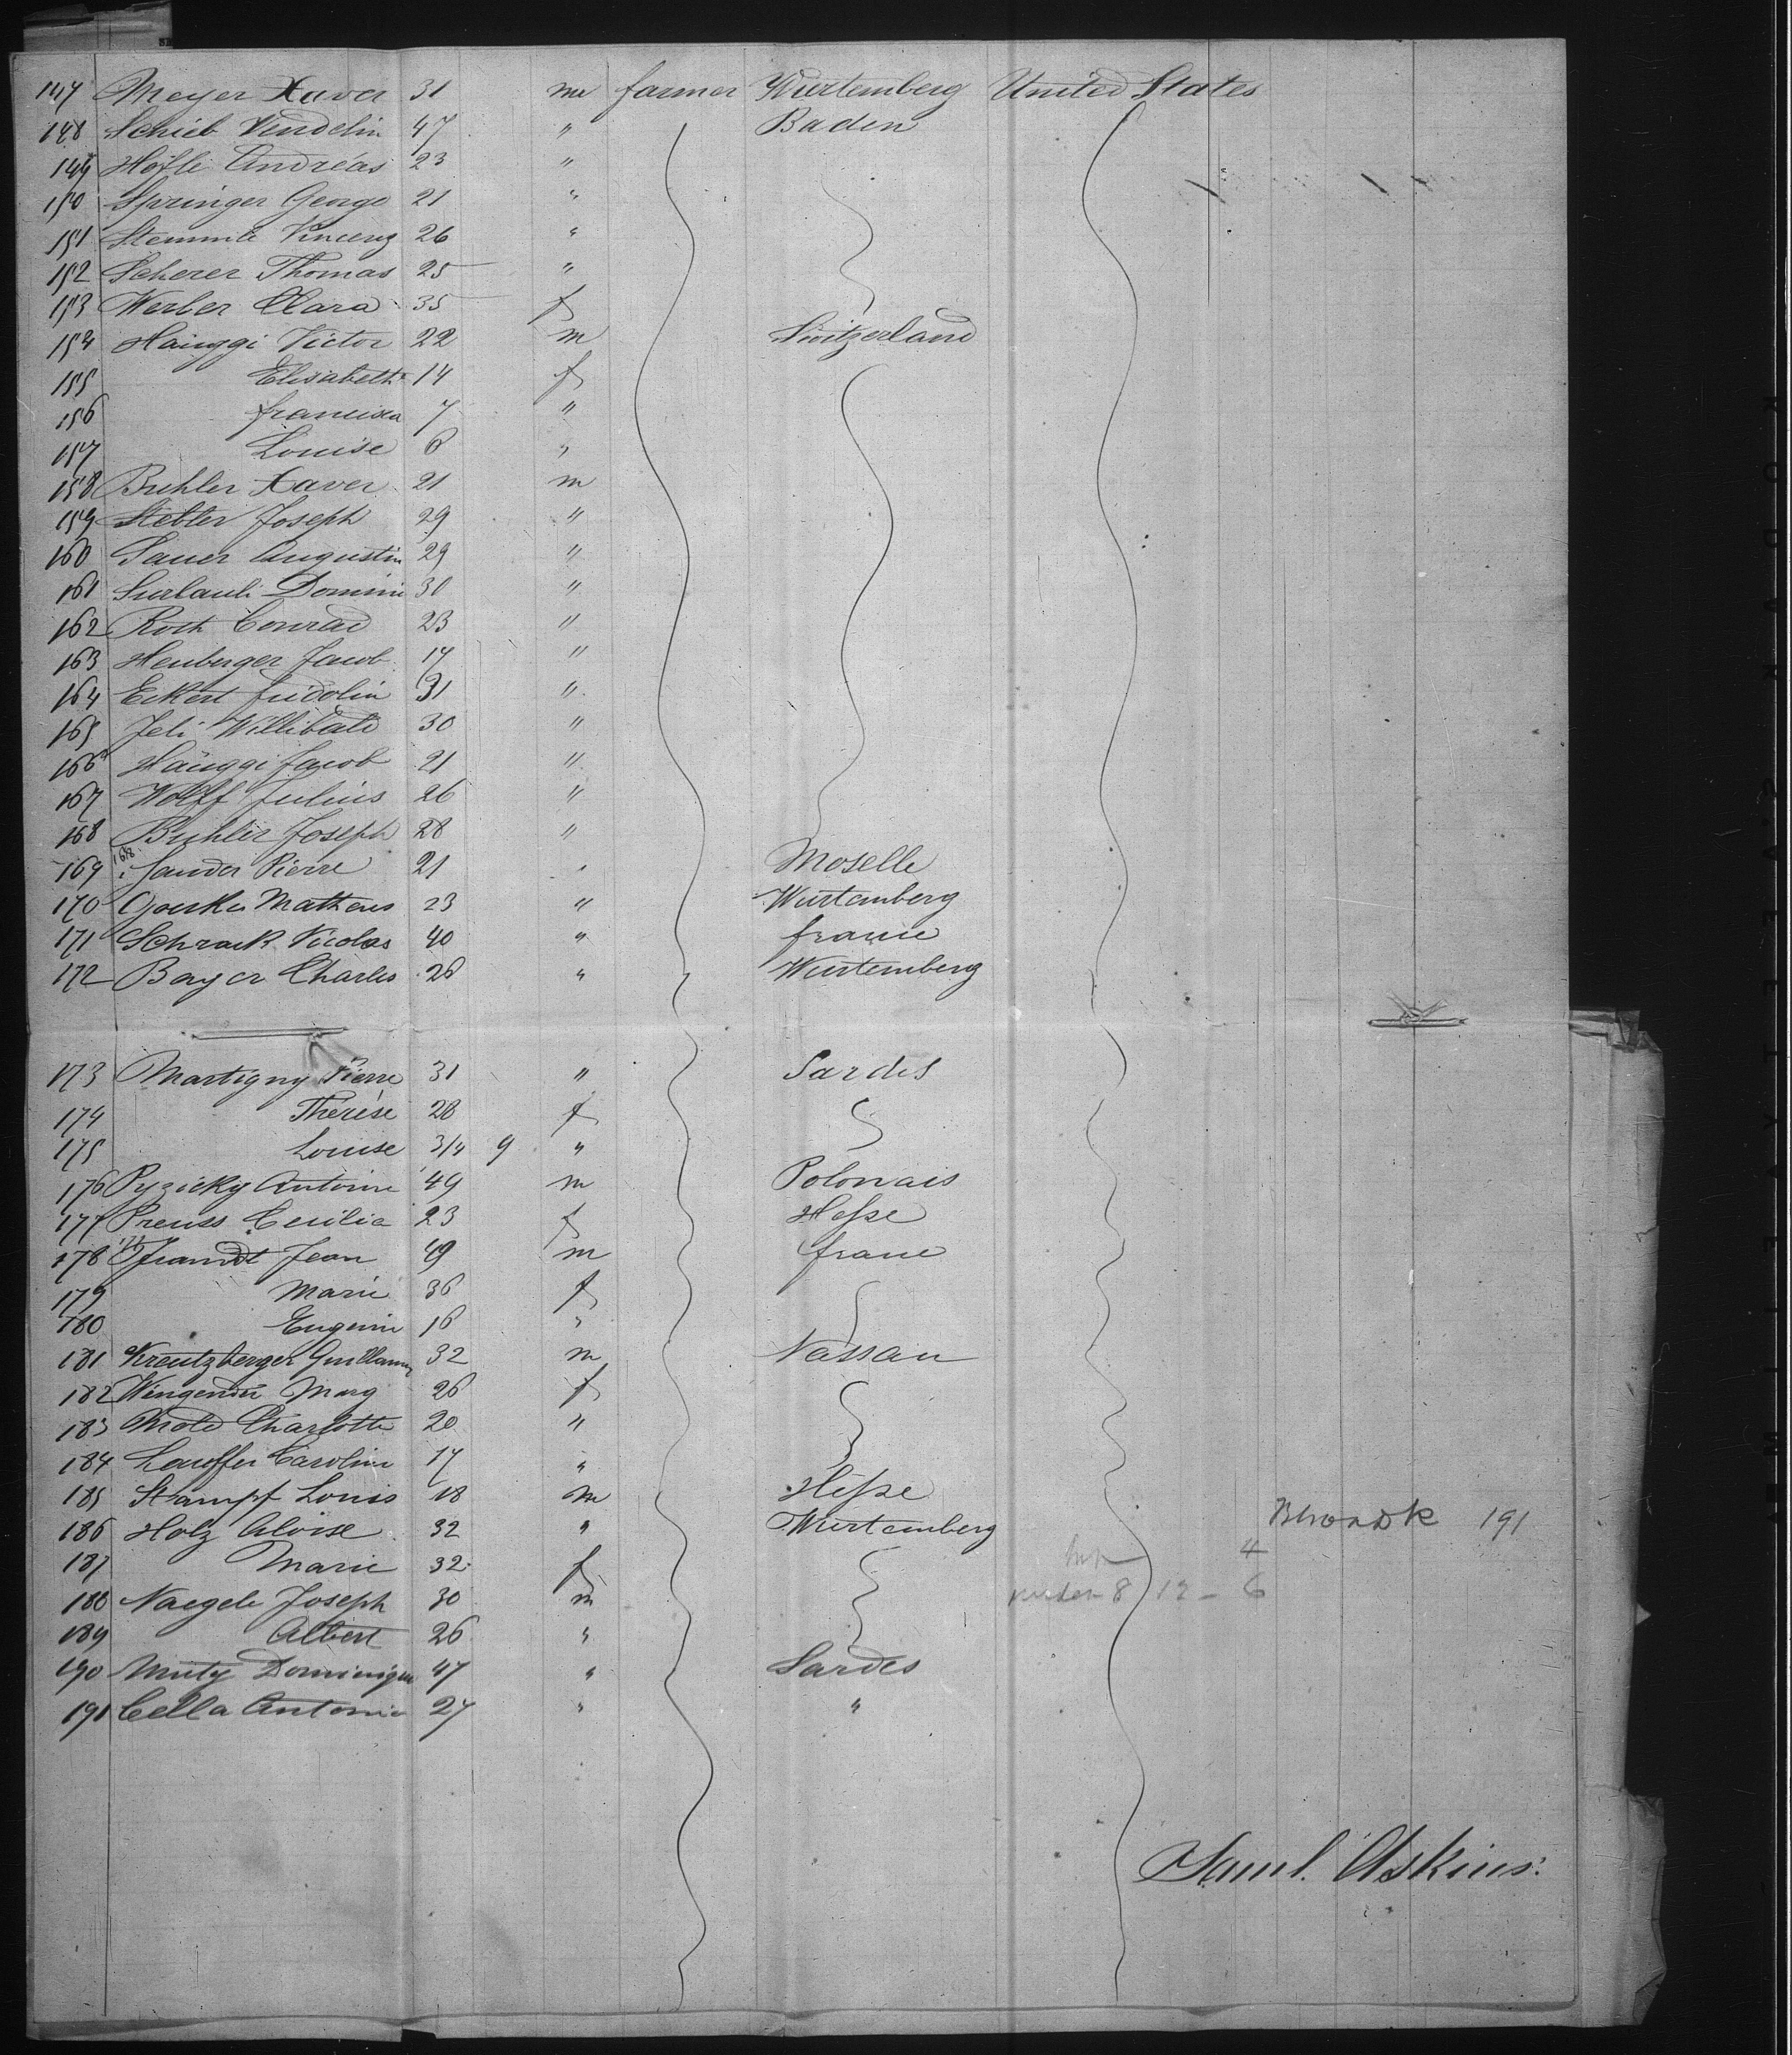 147 Meyer Xaver 31 m farmer Wurtemberg United States
148 Schieb Vendelin 47 " Baden
149 Höfle Andreas 23 "
150 Springer George 21 "
151 Stemmle Vincenz 26 "
152 Scherer Thomas 25 "
153 Werber Clara 35 f
154 Hänggi Victor 22 m Switzerland
155 Elisabeth 14 f
156 francisca 7 "
157 Louise 6 "
158 Buhler Xaver 21 m
159 Stebler Joseph 29 "
160 Sauer Augustin 29 "
161 Domini 30 "
162 Roth Conrad 23 "
163 Heuberger Jacob 17 "
164 Eckert fridolin 31 "
165 Jeli Willibald 30 "
166 Hänggi Jacob 21 "
167 Wolff Julius 26 "
168 Buhler Joseph 28 "
169 Sander Pierre 21 " Moselle
170 Matheus 23 " Wurtemberg
171 Schrack Nicolas 40 " france
172 Bayer Charles 26 " Wurtemberg
173 Martigny Pierre 31 " Sardes
174 Thérèse 28 f
175 Louise 3/4 9 "
176 Pyzicky Antoine 49 m Polonais
177 Preuss Cecilia 23 f Hesse
178 Jean 49 m france
179 Marie 36 f
180 Eugenie 16 "
181 Kreutzberger Guillaume 32 m Nassau
182 Wingender Marg 26 f
183 Charlotte 20 "
184 Lauffer Caroline 17 "
185 Stampf Louis 18 m Hesse
186 Holz Aloise 32 " Wurtemberg
191
187 Marie 32 f
4
188 Naegele Joseph 30 m
under 8 12 - 6
189 Albert 26 "
190 Dominique 47 " Sardes
191 Cella Antonio 27 " "
Saml. Askins.